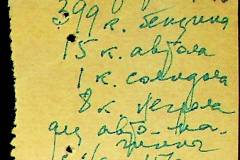 399 к. бензина
15 к. автола
1 к. солидола
8 к. нигрола
для авто-ма-
шины